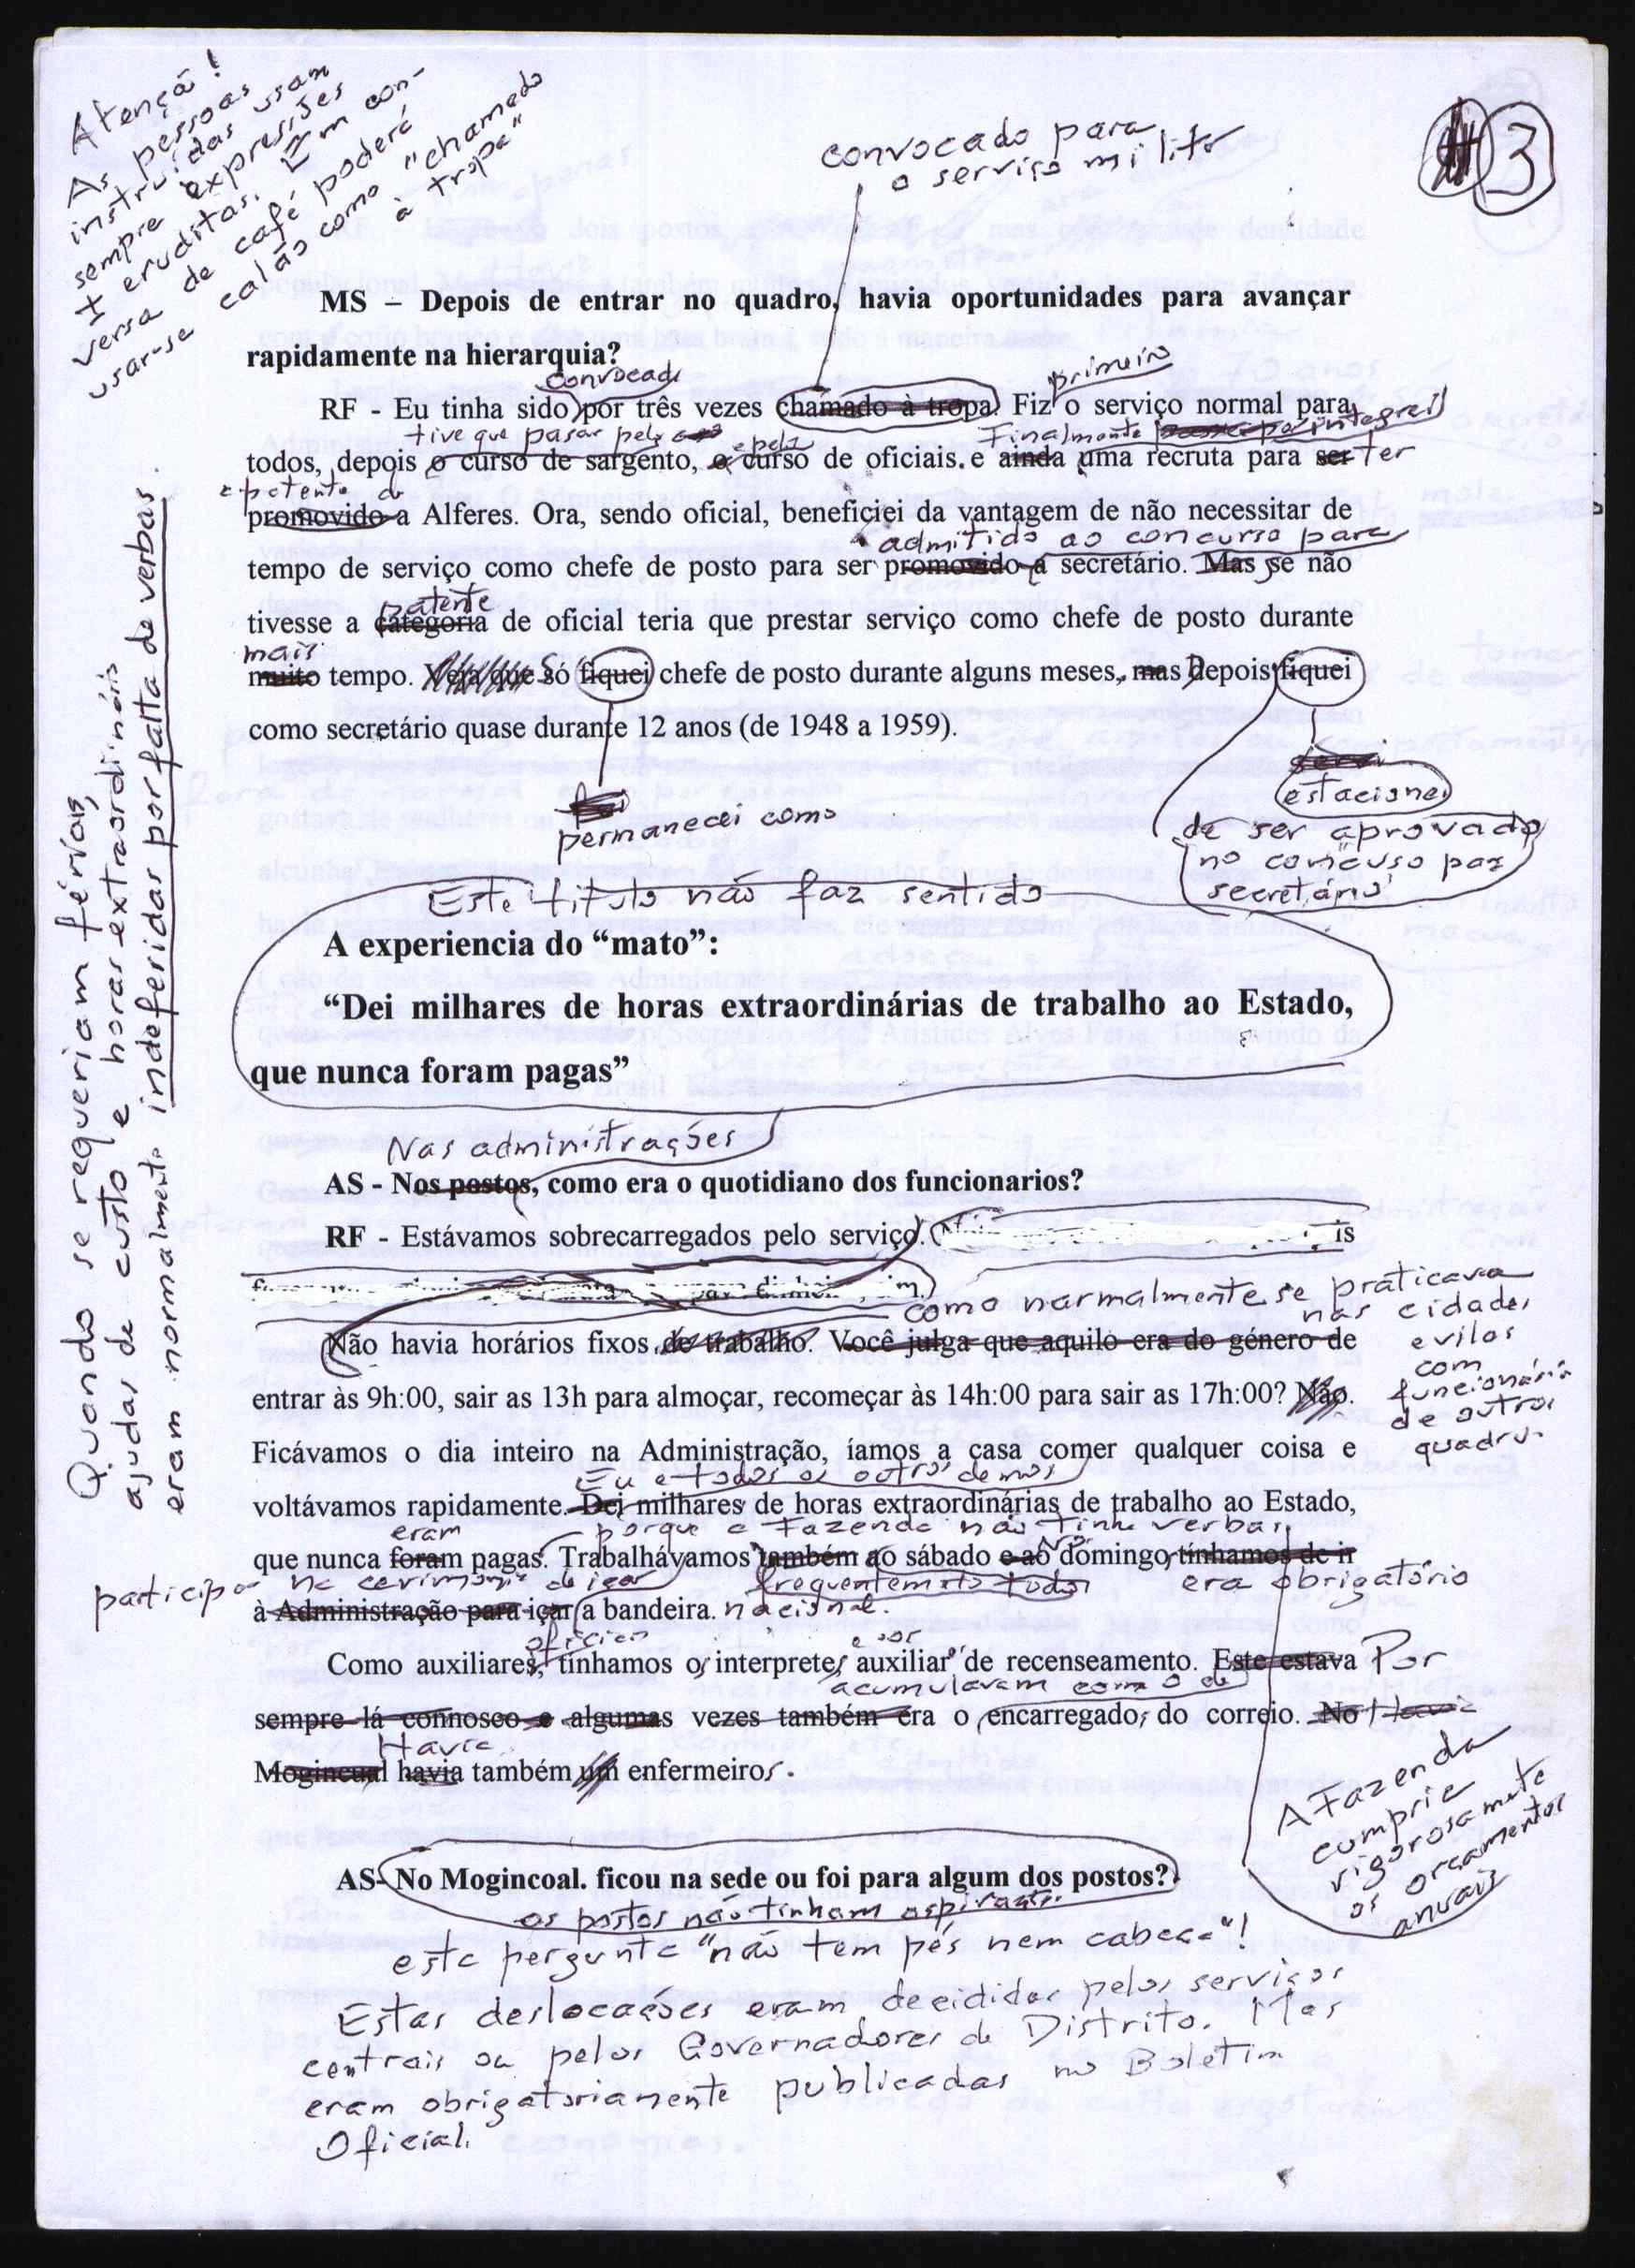 3
Atenção!
As pessoas
instruídas usam
sempre expressões
+ eruditas. Em con-
versa de café poderá
usar-se calão como "chamado
à tropa"
convocado para
o serviço militar
MS – Depois de entrar no quadro, havia oportunidades para avançar
rapidamente na hierarquia?
convocado
primeiro
RF - Eu tinha sido por três vezes chamado à tropa. Fiz o serviço normal para
tive que passar pelo e pelo Finalmente integrei
todos, depois o curso de sargento, o curso de oficiais. e ainda uma recruta para ser ter
a patente de
promovido a Alferes. Ora, sendo oficial, beneficiei da vantagem de não necessitar de
admitido ao concurso para
tempo de serviço como chefe de posto para ser promovido a secretário. Mas se não
patente
tivesse a categoria de oficial teria que prestar serviço como chefe de posto durante
mais
muito tempo. Veja que só fiquei chefe de posto durante alguns meses, mas Depois fiquei
como secretário quase durante 12 anos (de 1948 a 1959).
permanecei como
estacionei
de ser aprovado
no concurso para
secretário
Este título não faz sentido
A experiencia do “mato”:
“Dei milhares de horas extraordinárias de trabalho ao Estado,
que nunca foram pagas”
Quando se requeriam férias,
ajudas de custo e horas extraordinárias
eram normalmente indeferidas por falta de verbas.
Nas administrações
AS - Nos postos, como era o quotidiano dos funcionarios?
RF - Estávamos sobrecarregados pelo serviço. is
como normalmente se praticava
nas cidades
e vilas
com
funcionários
de outros
quadros
Não havia horários fixos de trabalho. Você julga que aquilo era do género de
entrar às 9h:00, sair as 13h para almoçar, recomeçar às 14h:00 para sair as 17h:00? Não.
Ficávamos o dia inteiro na Administração, íamos a casa comer qualquer coisa e
Eu e todos os outros demos
voltávamos rapidamente. Dei milhares de horas extraordinárias de trabalho ao Estado,
eram porque a Fazenda não tinha verbas
que nunca foram pagas. Trabalhávamos também ao sábado e ao domingo, tínhamos de ir
participar na cerimónia de içar frequentemente todos era obrigatório
à Administração para içar a bandeira. nacional.
oficiais e os
Como auxiliares, tínhamos os interpretes auxiliar de recenseamento. Este estava Por
acumulavam com o de
sempre lá connosco e algumas vezes também era o encarregado, do correio. No
Havia
Mogincual havia também um enfermeiros.
A Fazenda
cumpria
rigorosamente
os orçamentos
anuais
AS- No Mogincoal. ficou na sede ou foi para algum dos postos?
os postos não tinham aspirantes.
esta pergunta "não tem pés nem cabeça"!
Estas deslocações eram decididas pelos serviços
centrais ou pelos Governadores de Distrito. Mas
eram obrigatoriamente publicadas no Boletim
Oficial.